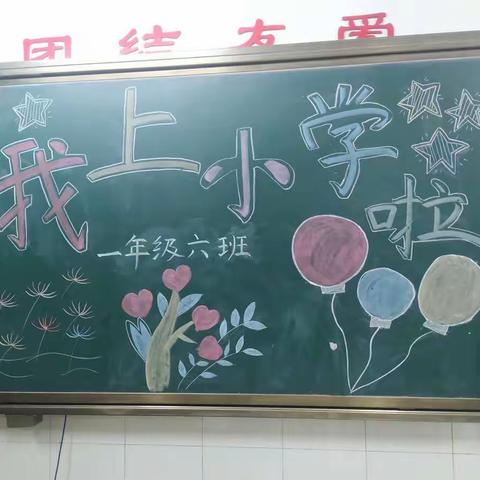 团结友爱
我上小学啦
一年级六班